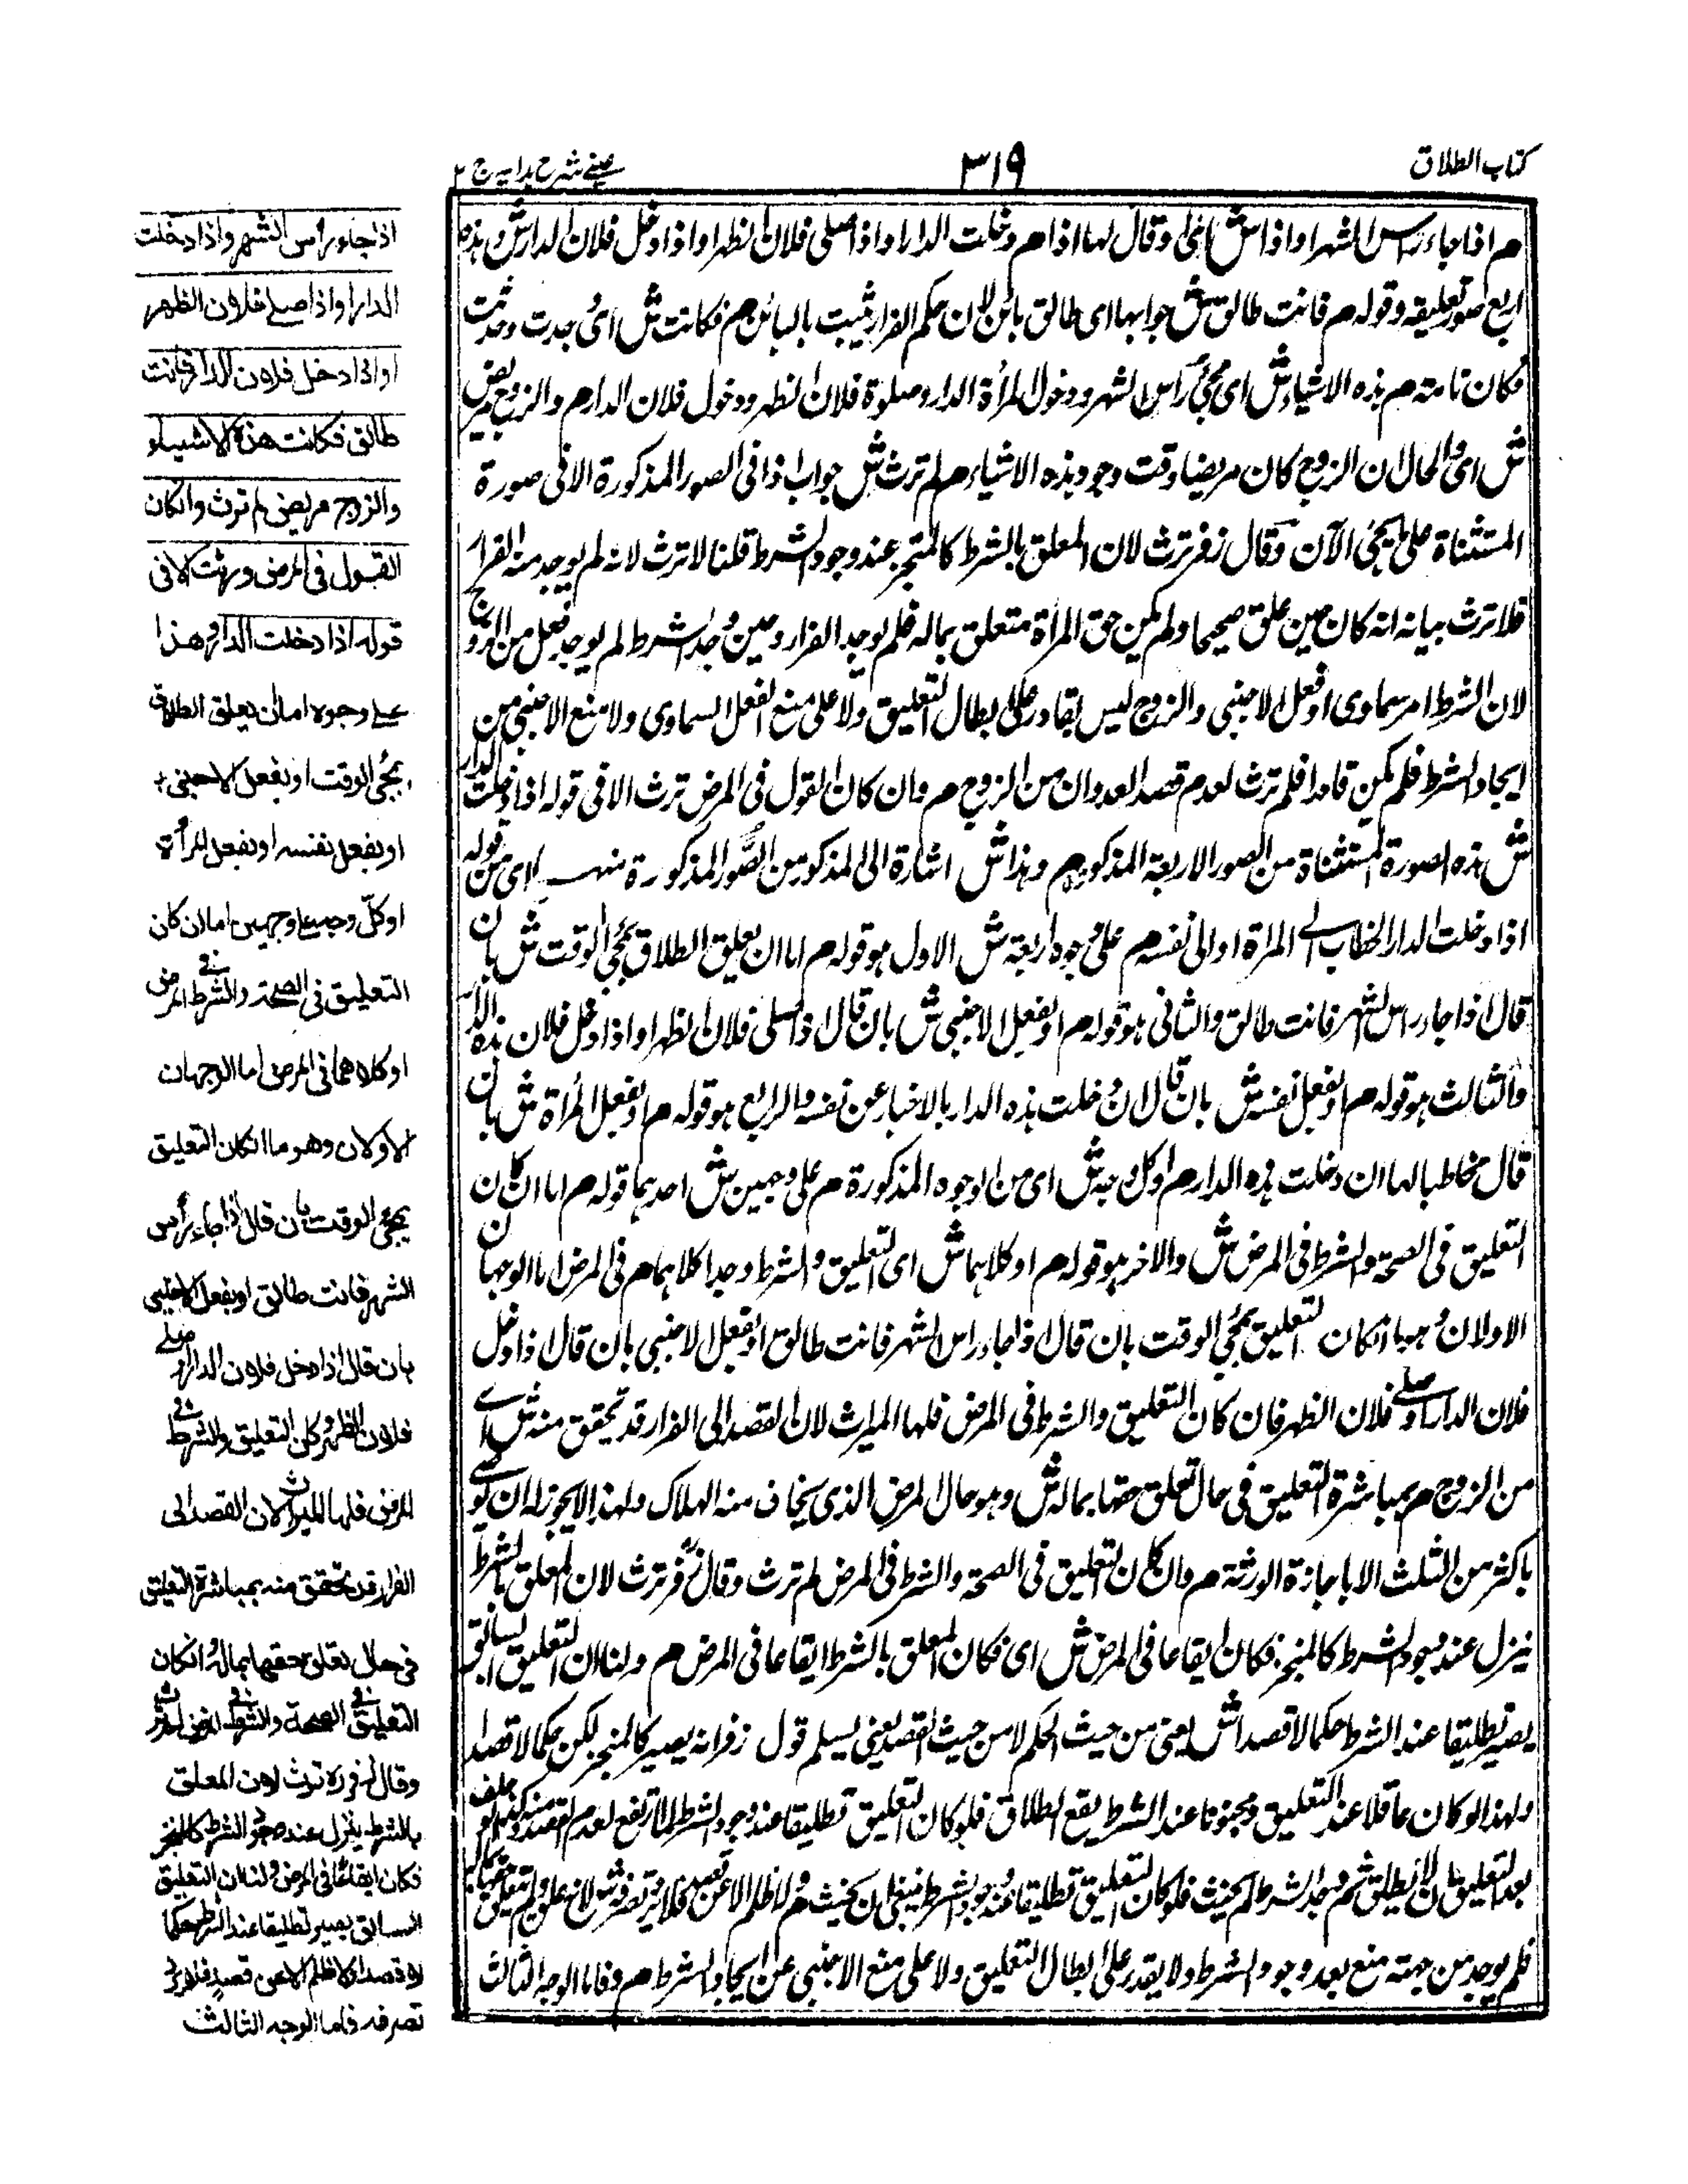 كتاب الطلاق
٣١٩
عينى شرح هدايه ج ٢
م اذا جاء راس الشهر او اذا ش اى او قال لها اذا م دخلت الدار او اذا صلى فلان الظهر او اذا دخل فلان الدار ش و هذه
اربع صور تعليقه وقوله م فانت طالق ش جوابها اى طالق بائن لان حكم الفرار يثبت بالبائن م فكانت ش اى وجدت وحدثت
فكان تامة م هذه الاشياء ش اى مجئ رأس الشهر ودخول المرأة الدار وصلوة فلان الظهر ودخول فلان الدار م والزوج مريض
ش اى والحال ان الزوج كان مريضا وقت وجود هذه الاشياء م لم ترث ش جواب اذا فى الصور المذكورة الا فى صورة
المستثناة على ما يجئ الآن وقال زفر ترث لان المعلق بالشرط كالمنجز عند وجود الشرط قلنا لا ترث لانه لم يوجد منه الفرار
فلا ترث بيانه انه كان حين علق صحيحا ولم يكن حق المرأة متعلق بماله فلم يوجد الفرار وحين وجد الشرط لم يوجد فعل من الزوج
لان الشرط امر سماوى او فعل الاجنبى والزوج ليس بقادر على ابطال التعليق ولا على منع الفعل السماوى ولا منع الاجنبى من
ايجاد الشرط فلم يكن قادرا فلم ترث لعدم قصد العدوان من الزوج م وان كان القول فى المرض ترث الا فى قوله اذا دخلت الدار
ش هذه الصورة المستثناة من الصور الاربعة المذكورة م وهذا ش اشارة الى المذكور من الصور المذكورة منها اى من قوله
اذا دخلت الدار الخطاب الى المراة او الى نفسه م على وجوه اربعة ش الاول هو قوله م اما ان يعلق الطلاق بمجئ الوقت ش بان
قال اذا جاء راس الشهر فانت طالق والثانى هو قوله م او بفعل الاجنبى ش بان قال اذا صلى فلان الظهر او اذا دخل فلان هذه الدار
والثالث هو قوله م او بفعل نفسه ش بان قال ان دخلت هذه الدار بالاخبار عن نفسه والرابع هو قوله م او بفعل المرأة ش بان
قال مخاطبا لها ان دخلت هذه الدار م او كل وجه ش اى من الوجوه المذكورة م على وجهين ش احدهما قوله م اما ان كان
التعليق فى الصحة والشرط فى المرض ش والاخر هو قوله م او كلاهما ش اى التعليق والشرط وجدا كلاهما م فى المرض اما الوجهان
الاولان وهو ما اذا كان التعليق بمجئ الوقت بان قال اذا جاء راس الشهر فانت طالق او بفعل الاجنبى بان قال اذا دخل
فلان الدار او صلى فلان الظهر فان كان التعليق والشرط فى المرض فلها الميراث لان القصد الى الفرار قد تحقق منه ش اى
من الزوج م بمباشرة التعليق فى حال تعلق حقها بماله ش وهو حال المرض الذى يخاف منه الهلاك ولهذا لا يجوز له ان يوصى
باكثر من الثلث الا باجازة الورثة م وان كان التعليق فى الصحة والشرط فى المرض لم ترث وقال زفر ترث لان المعلق بالشرط
ينزل عند وجود الشرط كالمنجز فكان ايقاعا فى المرض ش اى فكان المعلق بالشرط ايقاعا فى المرض م ولنا ان التعليق السابق
يصير تطليقا عند الشرط حكما لا قصدا ش يعنى من حيث الحكم لا من حيث القصد يعنى يسلم قول زفر انه يصير كالمنجز لكن حكما لا قصدا
ولهذا لو كان عاقلا عند التعليق ومجنونا عند الشرط يقع الطلاق فلو كان التعليق تطليقا عند وجود الشرط لما وقع لعدم القصد منه وكذا لو حلف
بعد التعليق بان لا يطلق ثم وجد الشرط لم يحنث فلو كان التعليق تطليقا عند وجود الشرط ينبغى ان يحنث م ولا ظلم الا عن قصد فلا يرد تصرفه ش لانه علق ولم يتعلق حقها بماله
فلم يوجد من جهته منع بعد وجود الشرط ولا يقدر على ابطال التعليق ولا على منع الاجنبى عن ايجاد الشرط م فاما الوجه الثالث
اذا جاء رأس الشهر واذا دخلت
الدار او اذا صلى فلان الظهر
او اذا دخل فلان الدار فانت
طالق فكانت هذه الاشياء
والزوج مريض لم ترث وانكان
القول فى المرض ورثت الا فى
قوله اذا دخلت الدار وهذا
على وجوه اما ان يعلق الطلاق
بمجئ الوقت او بفعل الاجنبى
او بفعل نفسه او بفعل المرأة
او كل وجه على وجهين اما ان كان
التعليق فى الصحة والشرط فى المرض
او كلاهما فى المرض اما الوجهان
الاولان وهو ما اذا كان التعليق
بمجئ الوقت بان قال اذا جاء رأس
الشهر فانت طالق او بفعل الاجنبى
بان قال اذا دخل فلان الدار او صلى
فلان الظهر وكان التعليق والشرط فى
المرض فلها الميراث لان القصد الى
الفرار قد تحقق منه بمباشرة التعليق
فى حال تعلق حقها بماله وانكان
التعليق فى الصحة والشرط فى المرض لم ترث
وقال زفر ره ترث لان المعلق
بالشرط ينزل عند وجود الشرط كالمنجز
فكان ايقاعا فى المرض ولنا ان التعليق
السابق يصير تطليقا عند الشرط حكما
لا قصدا ولا ظلم الا عن قصد فلا يرد
تصرفه فاما الوجه الثالث